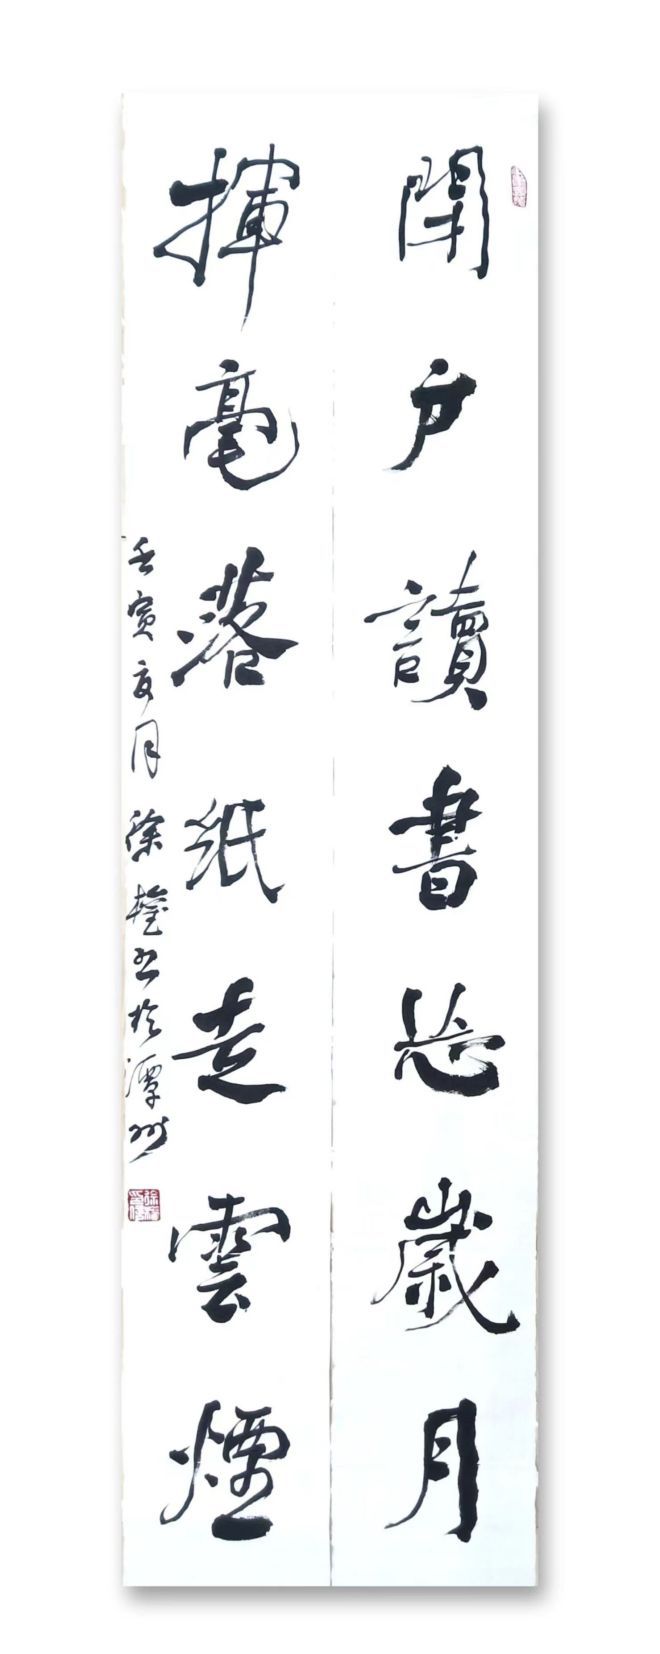 閉户讀書忘歲月
揮毫落紙走雲煙
壬寅夏月徐书於潭州